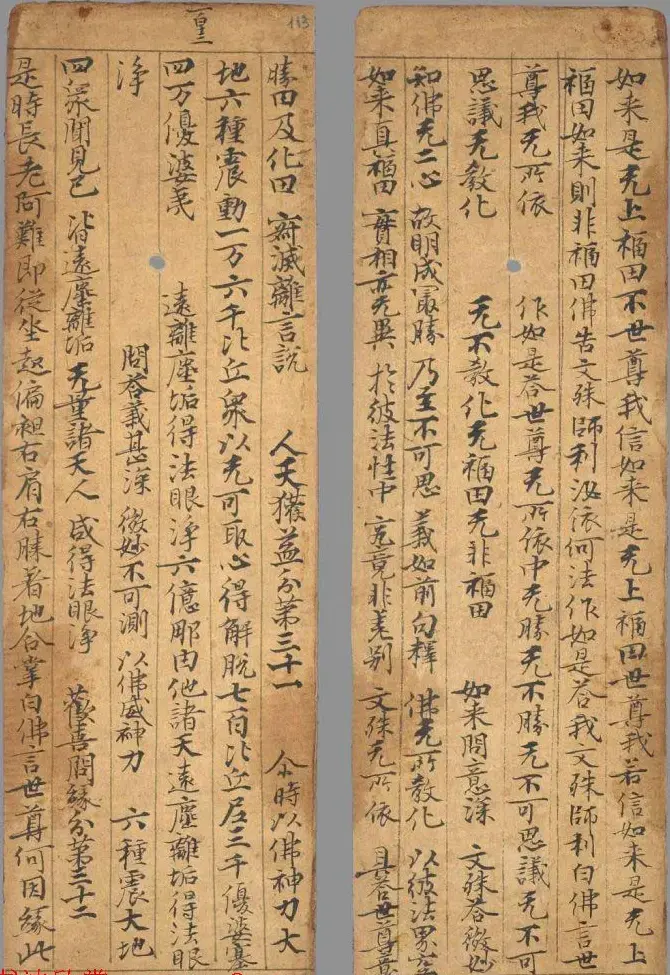 如来是无上福田不世尊我信如来是无上福田世尊我若信如来是无上
福田如来則非福田佛告文殊師利汝依何法作如是荅我文殊師利白佛言世
尊我无所依 作如是荅世尊无所依中无勝无不勝无不可思議无不可
思議无教化 无不教化无福田无非福田 如来問意深 文殊荅微妙
知佛无二心 故明成最勝 乃至不可思 義如前句釋 佛无所教化 以彼法界
如来真福田 實相亦无異 於彼法性中 究竟非差別 文殊无所依 具荅世尊意
皇二
113
勝田及化田 寂滅離言說 人天獲益分第三十一 尒時以佛神力大
地六種震動一万六千比丘衆以无可取心得解脫七百比丘尼三千優婆塞
四万優婆夷 遠離塵垢得法眼淨六億那由他諸天遠塵離垢得法眼
淨 問荅義甚深 微妙不可測 以佛威神力 六種震大地
四衆聞見已 皆遠塵離垢 无量諸天人 咸得法眼淨 歡喜問緣分第三十二
是時長老阿難即從坐起偏袒右肩右膝着地合掌白佛言世尊何因緣此